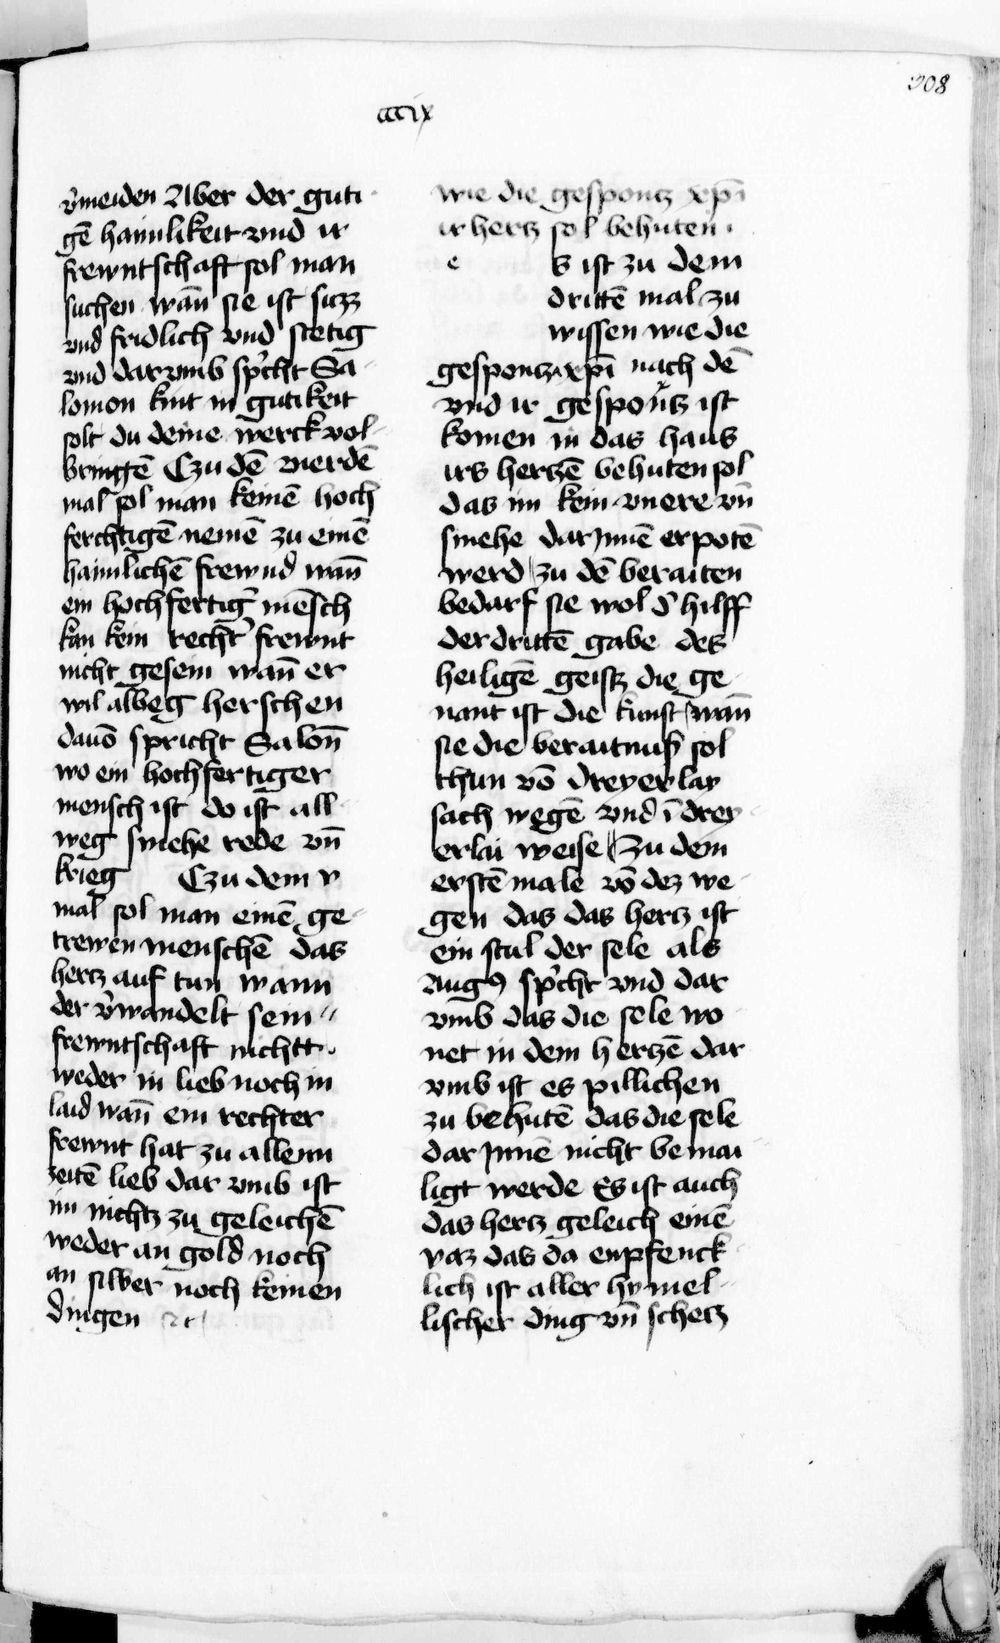 308
cccix
v̓meiden Aber der guti
gē haimlikeit vnd ir
frewntschaft sol man
suchen wañ sie ist suzz
vnd fridlich vnd stetig
vnd darvmb sp̓cht Sa-
lomon kint in gutikeit
solt du deine werck vol-
bringē Czu dē vierdē
mal sol man keinē hoch
ferchtigē nemē zu einē
haimlichē frewnd wañ
ein hochfertig̓ mēsch
kan kein recht̓ frewnt
nicht gesein wañ er
wil albeg herschen
dauō spricht Saloñ
wo ein hochfertiger
mensch ist do ist all-
weg smehe rede vñ
krieg Czu dem v
mal sol man einē ge-
trewen menschē das
hertz auf tun wann
der v̓wandelt sein
frewntschaft nichtt
weder in lieb noch in
laid wañ ein rechter
frewnt hat zu allenn
zeitē lieb dar vmb ist
im nichtz zu geleichē
weder an gold noch
an silber noch keinen
dingen
wie die gespontz xp̄i
ir hertz sol behuten
e s ist zu dem
drittē mal zu
wissen wie die
gespontz xp̄i nach dē
vnd ir gespoñtz ist
komen in das haus
irs hertzē behuten sol
das im kein vnere vñ
smehe dar Jnnē erpotē
werd zu dē beraiten
bedarf sie wol d̓ hilff
der drittē gabe des
heiligē geistz die ge-
nant ist die kunst wañ
sie die beraitnuß sol
thun vō dreyerlay
sach wegē vnd ī drey-
erlai weise Zu dem
erstē male vō dez we-
gen das das hertz ist
ein stul der sele als
Augꝰ sp̓cht vnd dar
vmb das die sele wo-
net in dem hertzē dar
vmb ist es pillichen
zu behutē das die sele
dar Jnnē nicht bemai-
ligt werde Es ist auch
das hertz geleich einē
vaz das da enpfenck-
lich ist aller hymel-
lischer ding vñ schetz